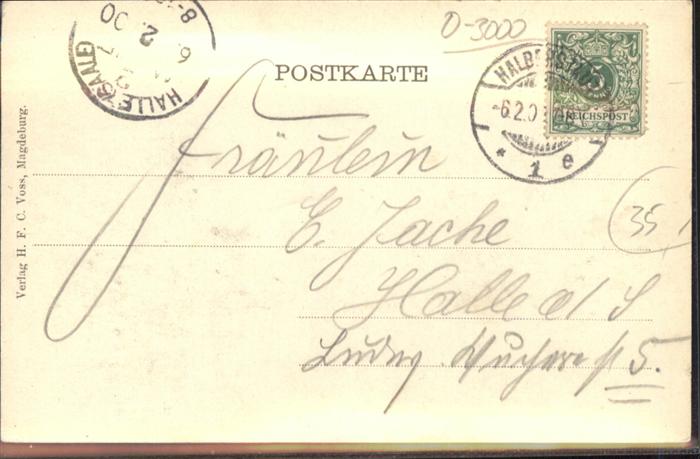 O-3000
HALLE (SAALE)
6 2 00
8-
POSTKARTE
HALBERSTADT
-6.2.0
* 1 e
5
REICHSPOST
Fräulein
E. Jache
35
Halle a/S
Ludw. Wucherer st 5.
Verlag H. F. C. Voss, Magdeburg.